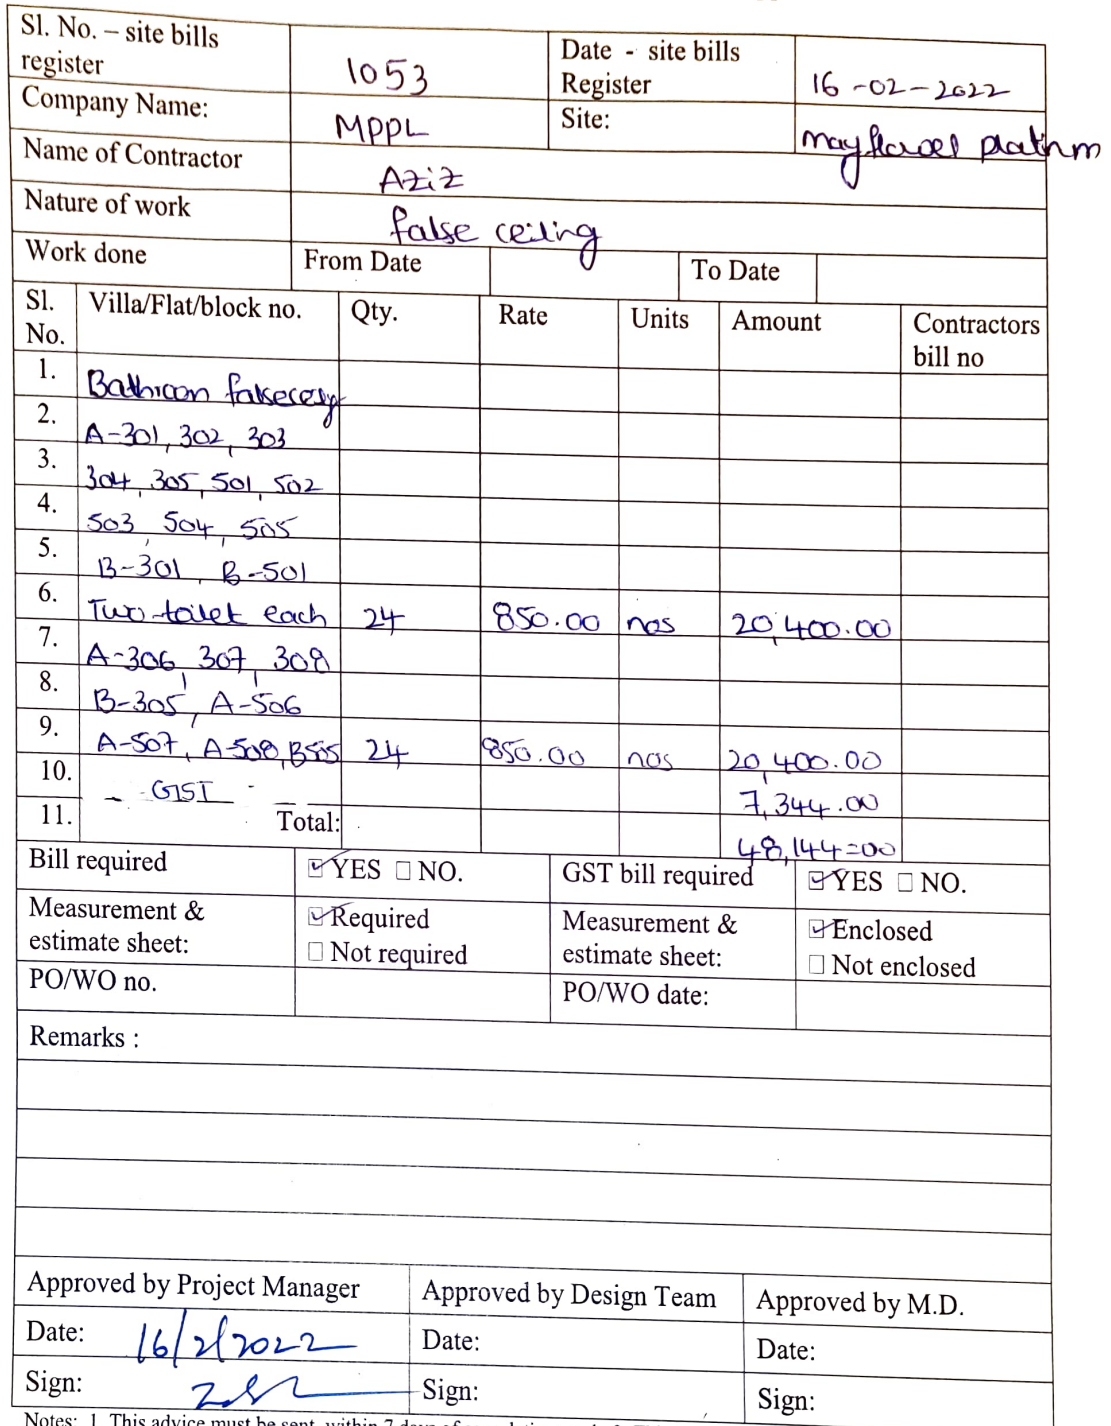 Sl. No. – site bills register 1053 Date - site bills Register 16-02-2022
Company Name: MPPL Site: mayflower platinm
Name of Contractor Aziz
Nature of work false ceiling
Work done From Date To Date
Sl. No. Villa/Flat/block no. Qty. Rate Units Amount Contractors bill no
1. Bathroom
2. A-301, 302, 303
3. 304, 305, 501, 502
4. 503, 504, 505
5. B-301, B-501
6. Two toilet each 24 850.00 nos 20,400.00
7. A-306, 307, 308
8. B-305, A-506
9. A-507, A-508, B505 24 850.00 nos 20,400.00
10. GST 7,344.00
11. Total: 48,144=00
Bill required YES NO. GST bill required YES NO.
Measurement & estimate sheet: Required Not required Measurement & estimate sheet: Enclosed Not enclosed
PO/WO no. PO/WO date:
Remarks :
Approved by Project Manager Approved by Design Team Approved by M.D.
Date: 16/2/2022 Date: Date:
Sign: Sign: Sign:
Notes: 1. This advice must be sent within 7 days of